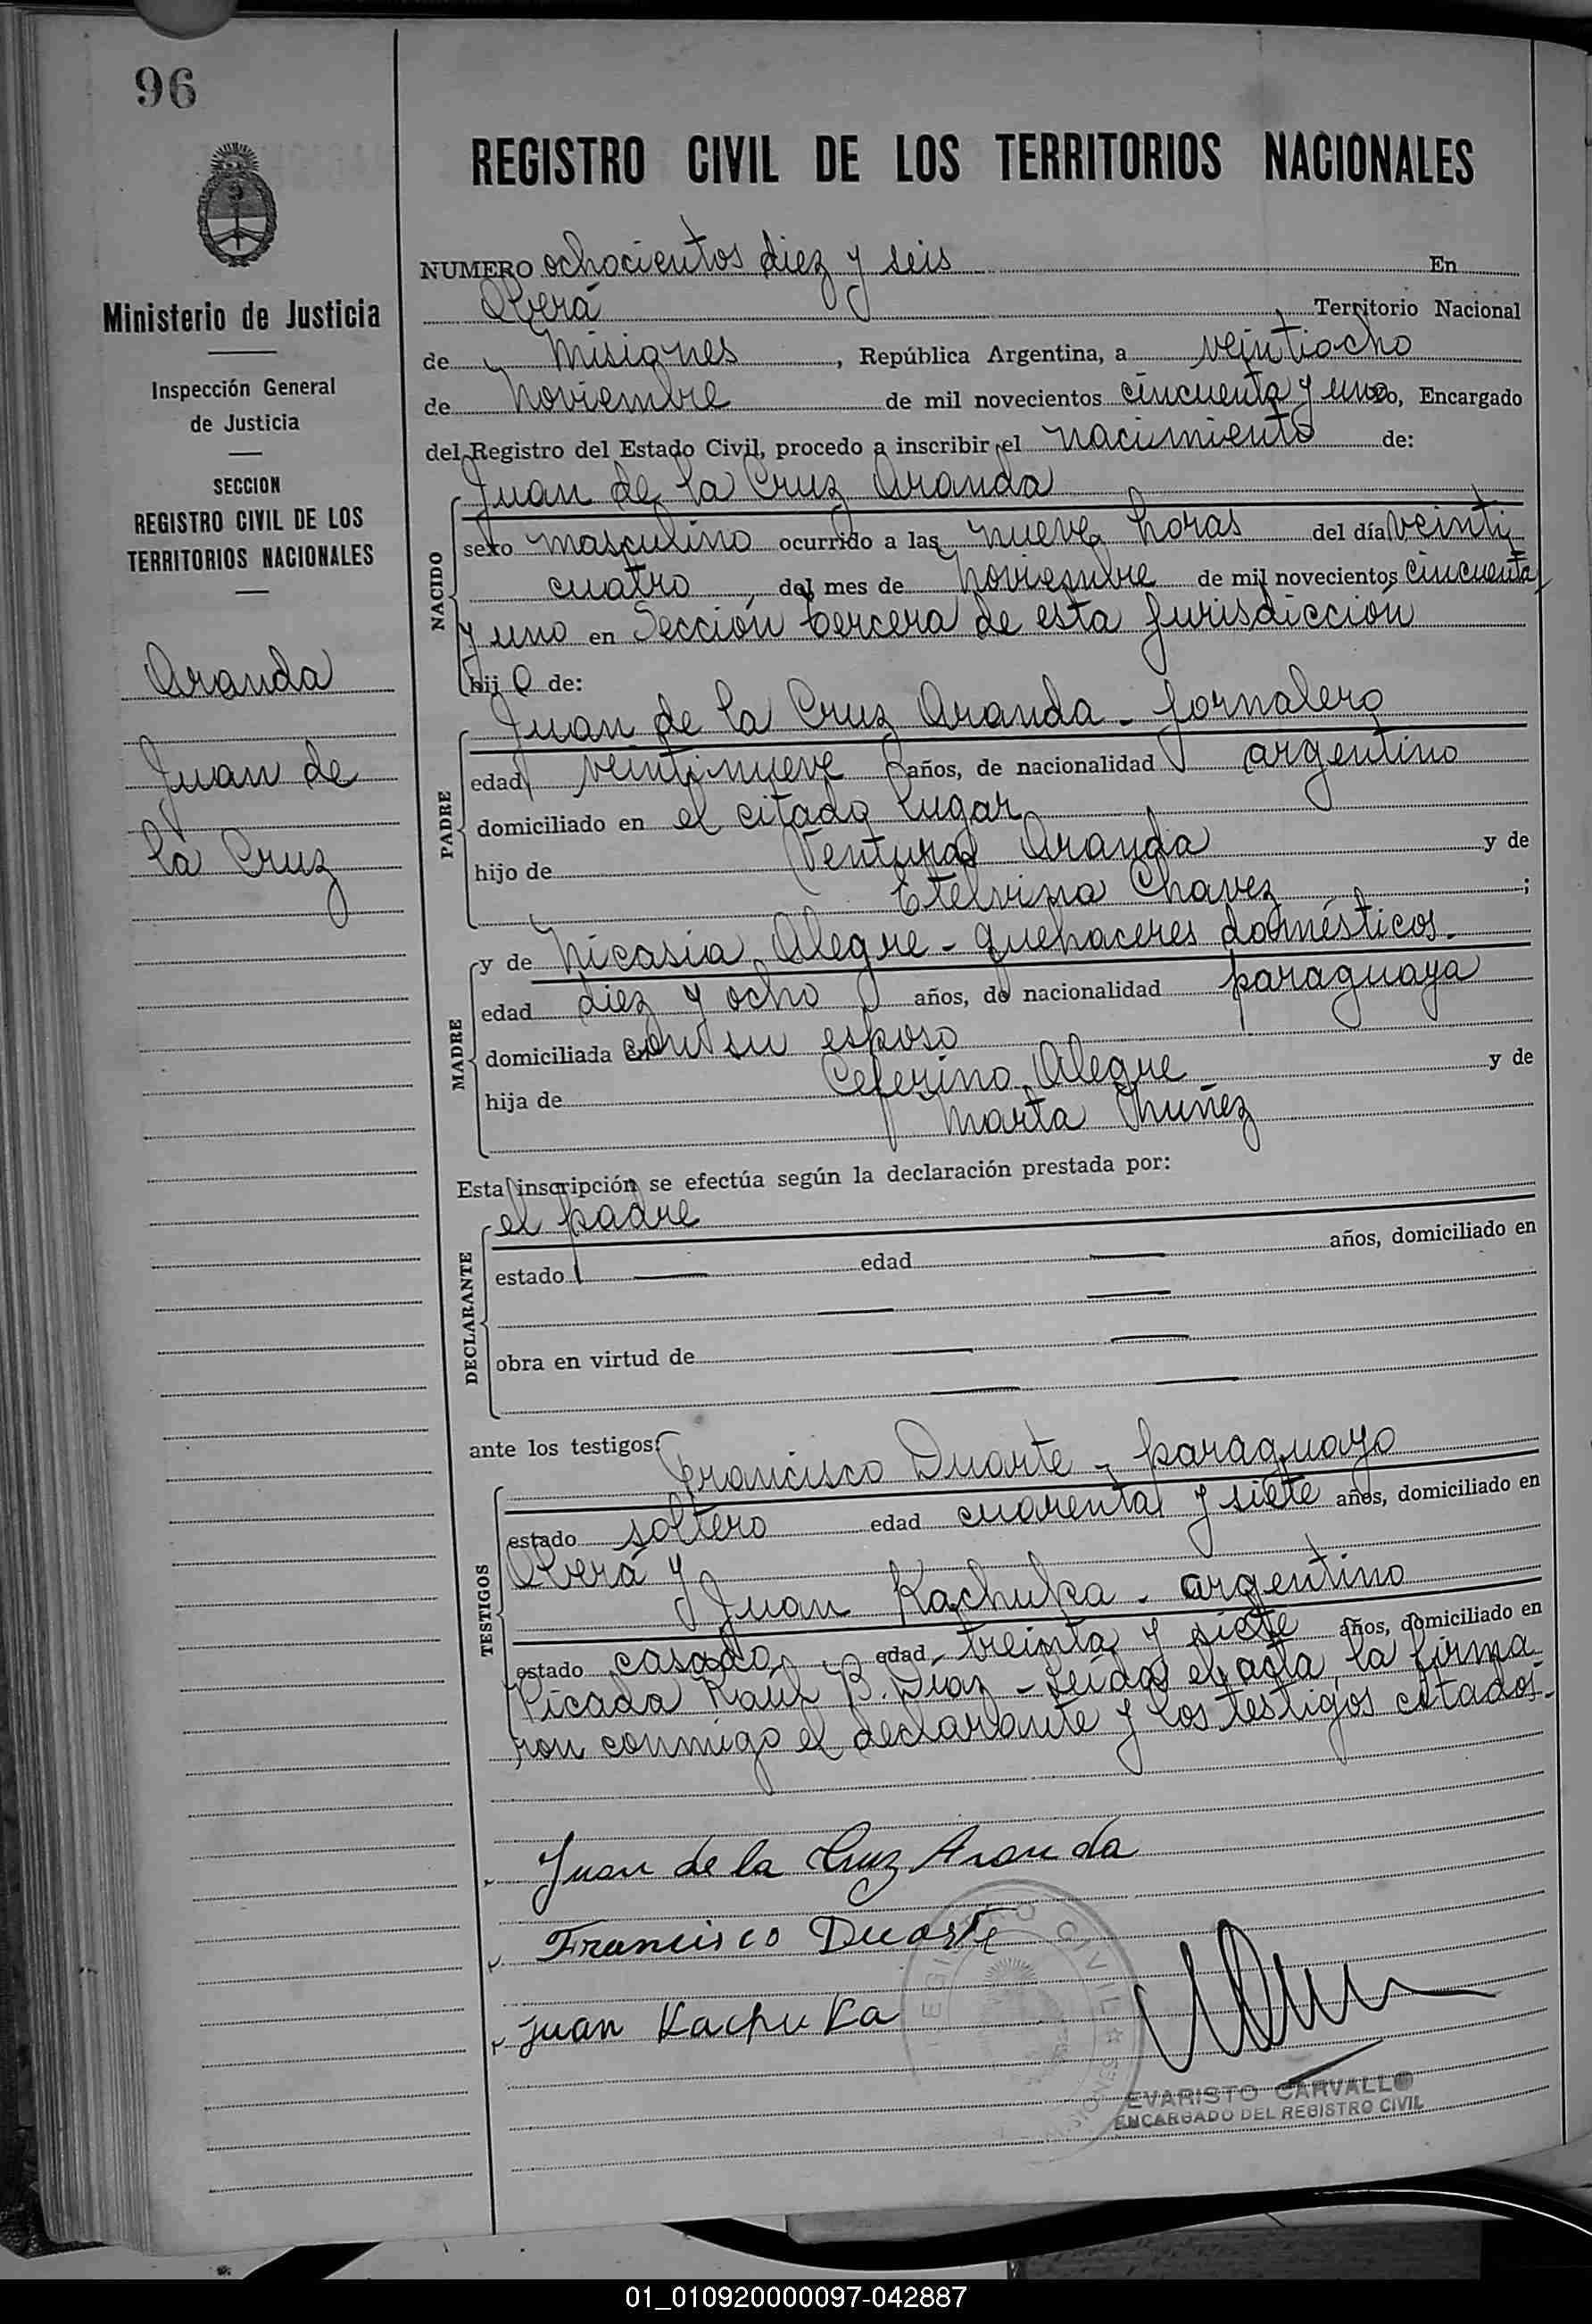 96
REGISTRO CIVIL DE LOS TERRITORIOS NACIONALES
Ministerio de Justicia
Inspección General
de Justicia
SECCION
REGISTRO CIVIL DE LOS
TERRITORIOS NACIONALES
Aranda
Juan de
la Cruz
NUMERO ochocientos diez y seis En
Oberá Territorio Nacional
de Misiones, República Argentina, a veintiocho
de Noviembre de mil novecientos cincuenta y uno, Encargado
del Registro del Estado Civil, procedo a inscribir el nacimiento de:
NACIDO
Juan de la Cruz Aranda
sexo masculino ocurrido a las nueve horas del día veinti
cuatro, del mes de Noviembre de mil novecientos cincuenta
y uno en Sección tercera de esta jurisdicción
hijo de:
PADRE
Juan de la Cruz Aranda - jornalero
edad veintinueve años, de nacionalidad argentino
domiciliado en el citado lugar
hijo de Ventura Aranda y de
Etelvina Chavez ;
MADRE
y de Nicasia Alegre - quehaceres domésticos.
edad diez y ocho años, de nacionalidad paraguaya
domiciliada con su esposo
hija de Ceferino Alegre y de
Marta Nuñez
Esta inscripción se efectúa según la declaración prestada por:
DECLARANTE
el padre
estado — edad — años, domiciliado en
— —
obra en virtud de — —
— —
ante los testigos:
TESTIGOS
Francisco Duarte - paraguayo
estado soltero edad cuarenta y siete años, domiciliado en
Oberá y
Juan Kachuka - argentino
estado casado edad treinta y siete años, domiciliado en
Picada Raúl B. Díaz - Leída el acta, la firma
ron conmigo el declarante y los testigos citados.-
Juan de la Cruz Aranda
Francisco Duarte
Juan Kachuka
REGISTRO CIVIL ☆ MISIONES
EVARISTO CARVALLO
ENCARGADO DEL REGISTRO CIVIL
01_010920000097-042887